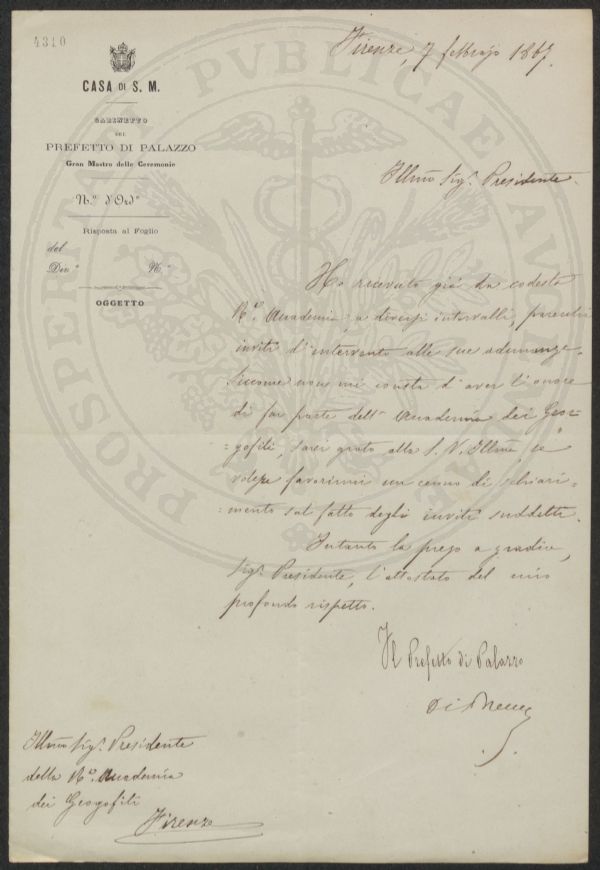 4310
CASA DI S. M.
GABINETTO
DEL
PREFETTO DI PALAZZO
Gran Mastro delle Ceremonie
N.º d'Ord.e
Risposta al Foglio
del
Div.e N.º
OGGETTO
Firenze, 7 febbrajo 1867.
Illmo Sig.r Presidente.
Ho ricevuto già da codesta
R.a Accademia, a diversi intervalli, parecchi
inviti d'intervento alle sue adunanze.
Siccome non mi consta d'aver l'onore
di far parte dell' Accademia dei Geor=
=gofili, sarei grato alla S. V. Illma, se
volesse favorirmi un cenno di schiari=
=mento sul fatto degli inviti suddetti.
Intanto la prego a gradire,
Sig.r Presidente, l'attestato del mio
profondo rispetto.
Il Prefetto di Palazzo
Illmo Sig.r Presidente
della R.a Accademia
dei Geogofili
Firenze
PROSPERITATI PVBLICAE AVGENDAE